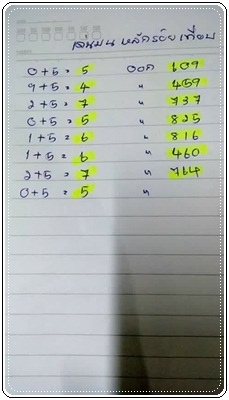 เด่นบน หลักร้อย เทียบ
0+5 = 5 ออก 109
9+5 = 4 " 459
2+5 = 7 " 737
0+5 = 5 " 825
1+5 = 6 " 816
1+5 = 6 " 460
2+5 = 7 " 764
0+5 = 5 "